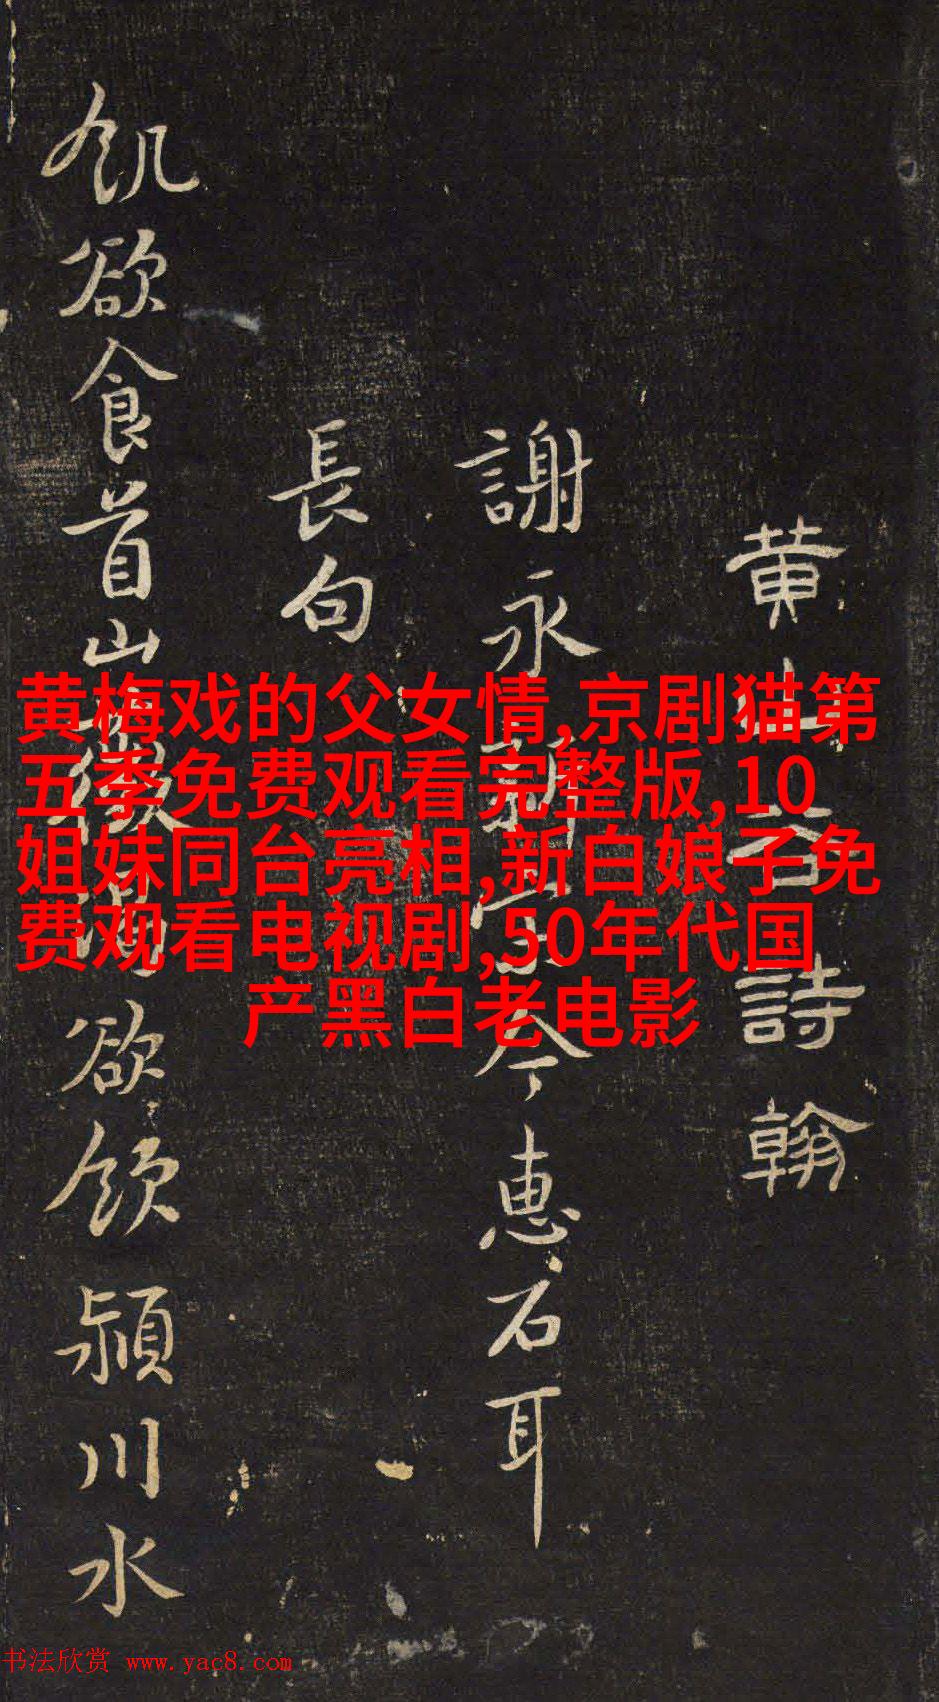 黄山谷詩翰
謝永新宗令惠石耳
長句
飢欲食首山薇渴欲飲潁川水
黄梅戏的父女情,京剧猫第
五季免费观看完整版,10
姐妹同台亮相,新白娘子免
费观看电视剧,50年代国
产黑白老电影
书法欣赏 www.yac8.com